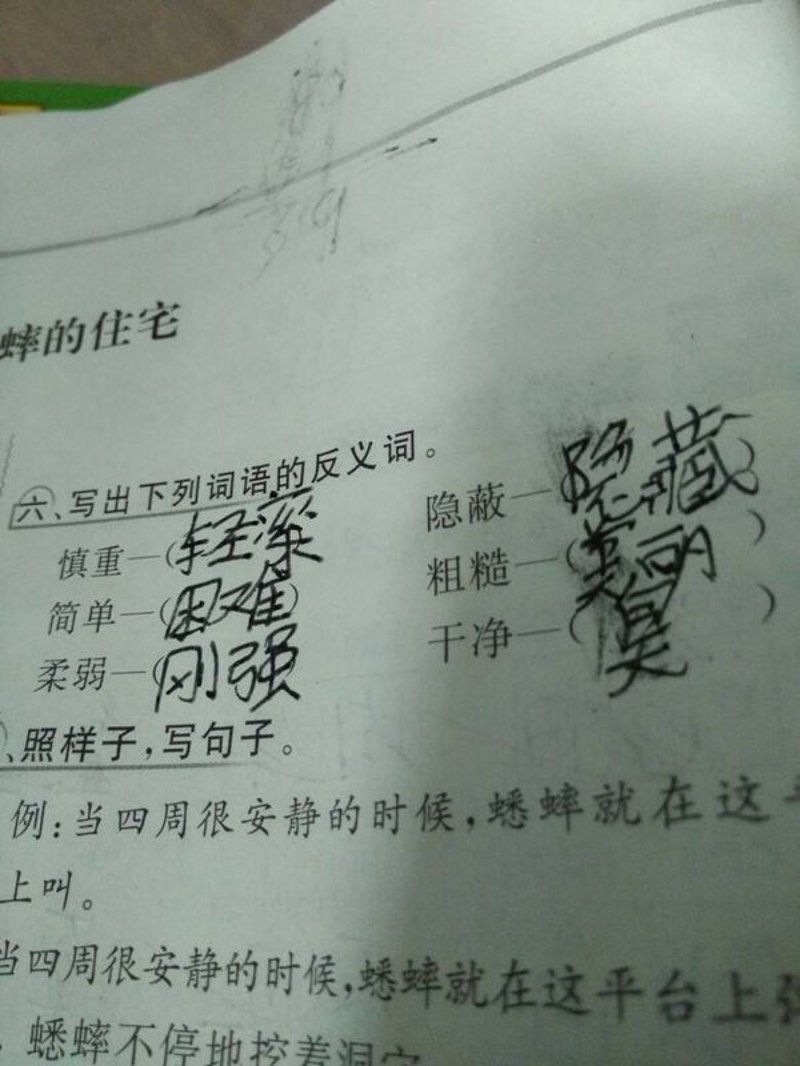 蟀的住宅
六、写出下列词语的反义词。
慎重—( 隐蔽—(隐藏)
简单—(困难) 粗糙—( )
柔弱—(刚强 干净—(臭 )
、照样子，写句子。
例：当四周很安静的时候，蟋蟀就在这平
上叫。
当四周很安静的时候，蟋蟀就在这平台上弹
蟋蟀不停地挖着洞穴